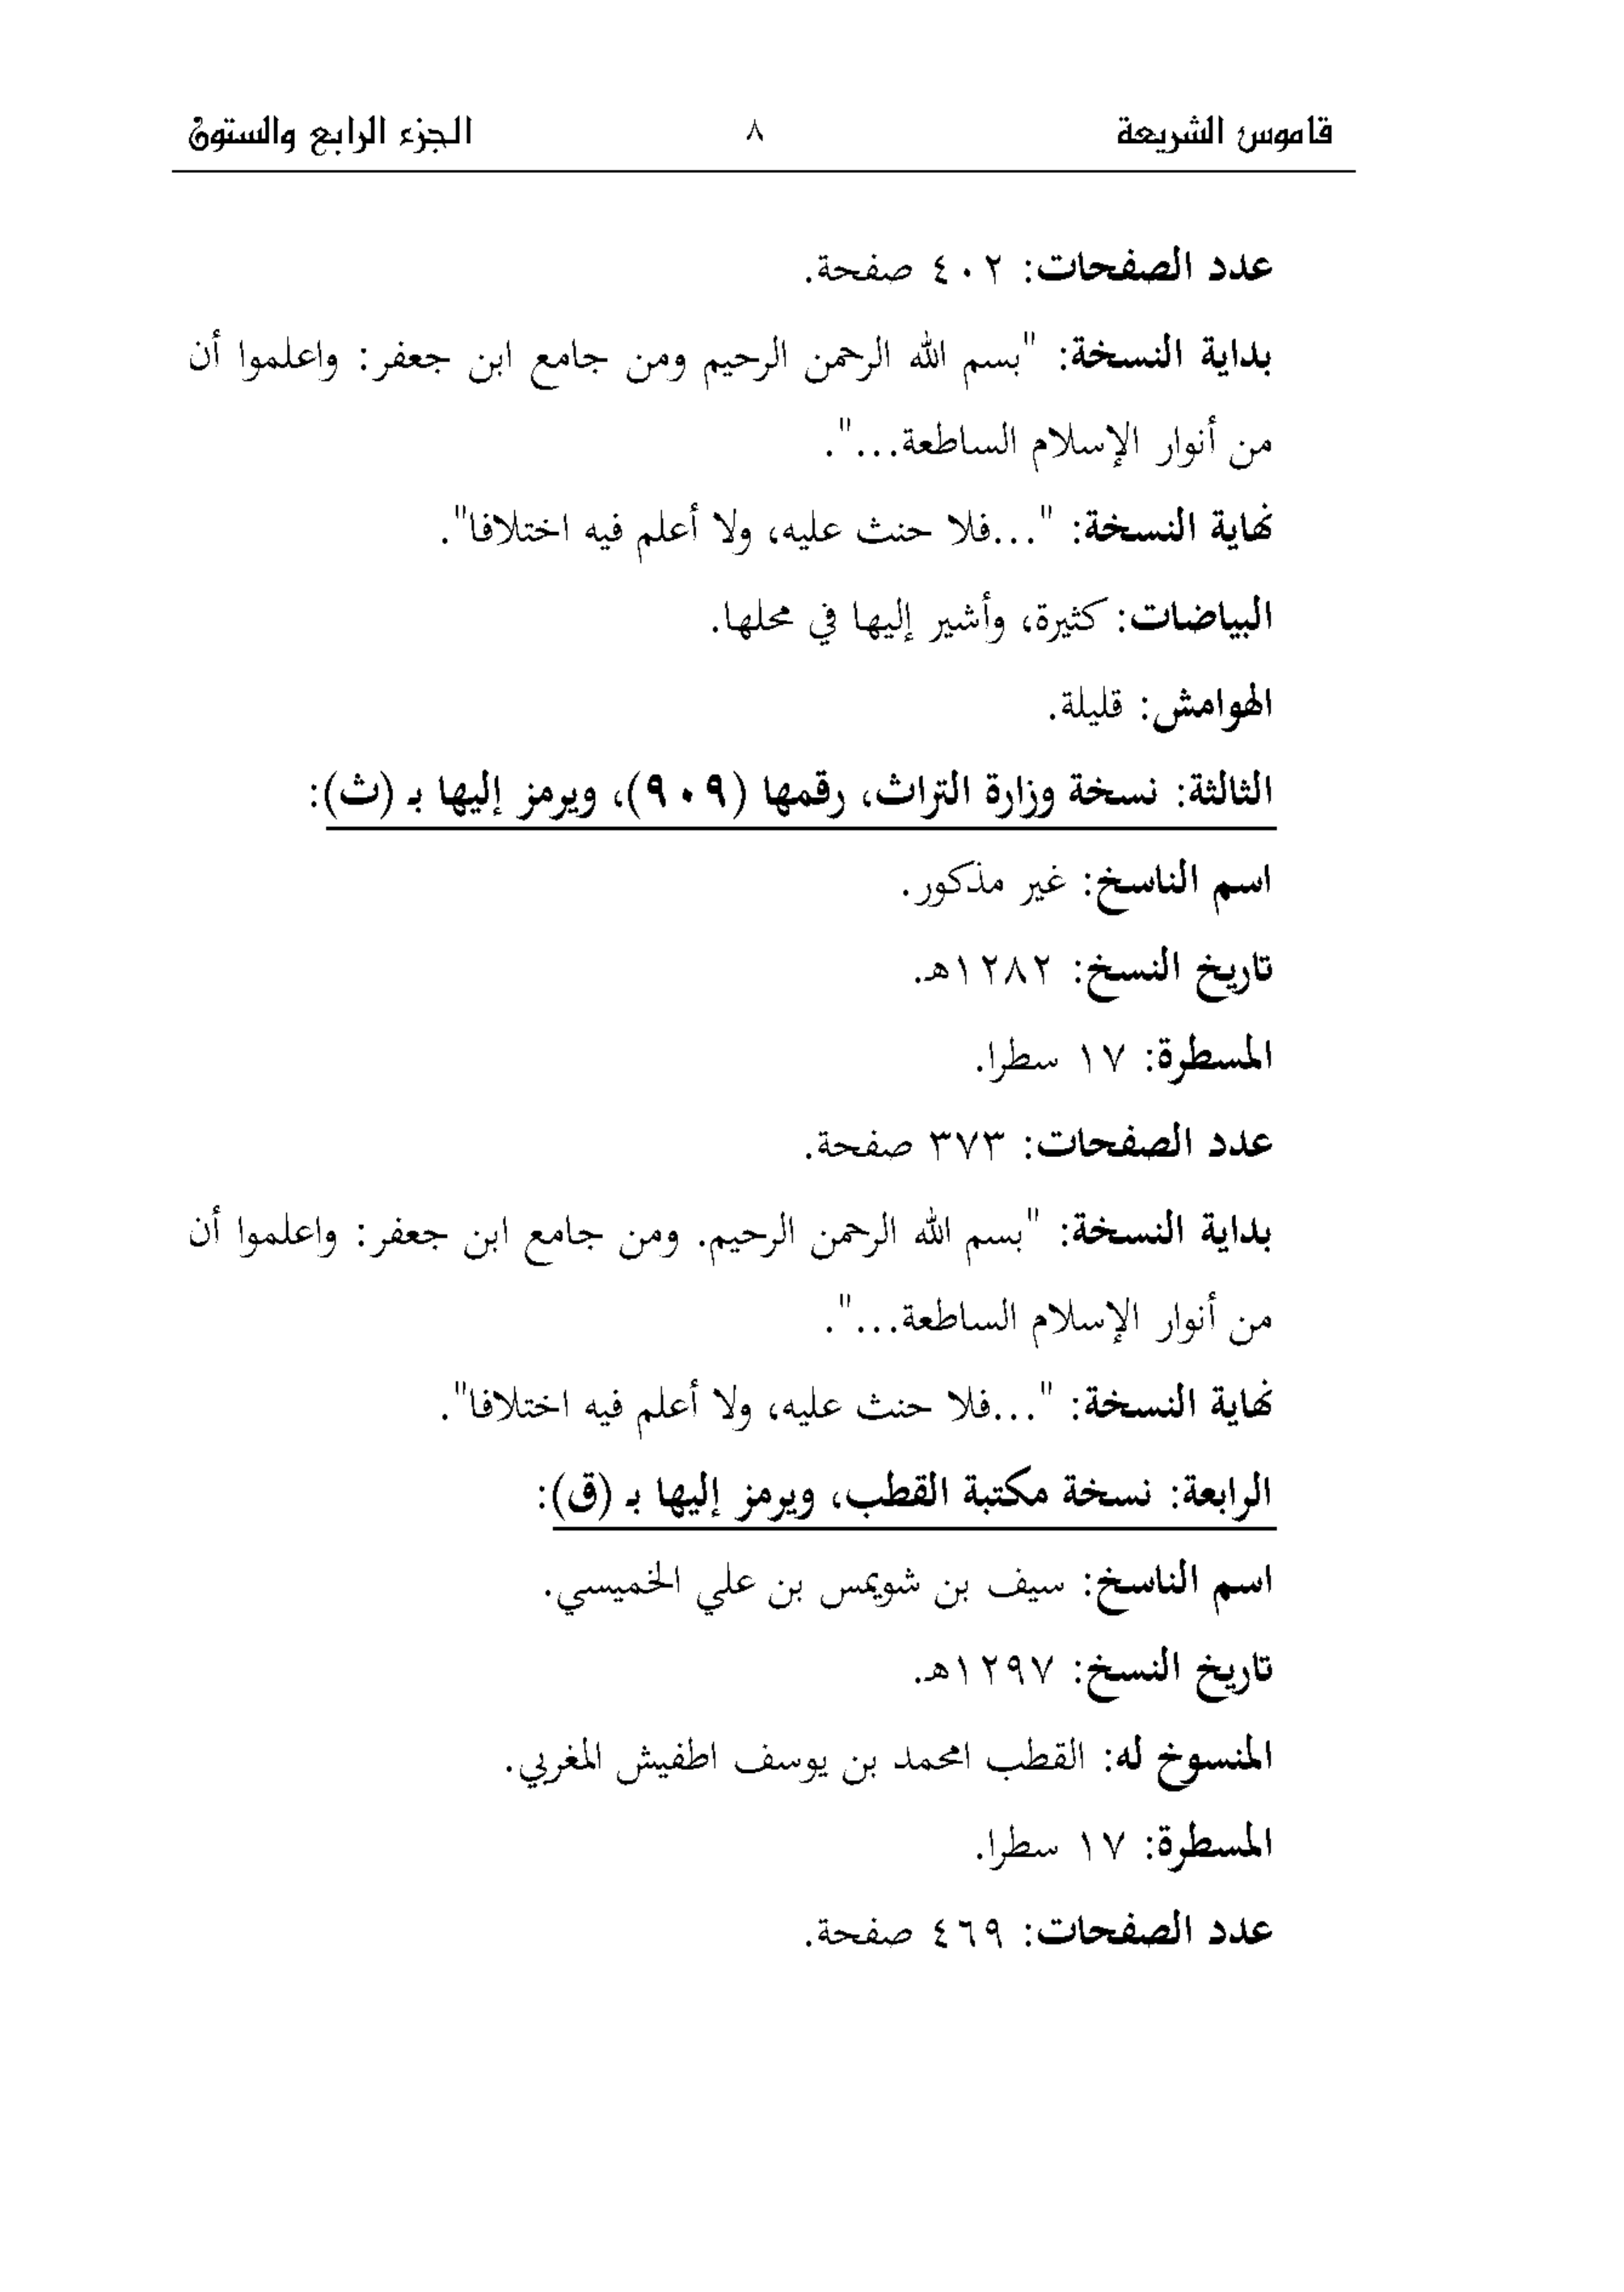 قاموس الشريعة ٨ الجزء الرابع والستون
عدد الصفحات: ٤٠٢ صفحة.
بداية النسخة: "بسم الله الرحمن الرحيم ومن جامع ابن جعفر: واعلموا أن
من أنوار الإسلام الساطعة...".
نهاية النسخة: "...فلا حنث عليه، ولا أعلم فيه اختلافا".
البياضات: كثيرة، وأشير إليها في محلها.
الهوامش: قليلة.
الثالثة: نسخة وزارة التراث، رقمها (٩٠٩)، ويرمز إليها بـ (ث):
اسم الناسخ: غير مذكور.
تاريخ النسخ: ١٢٨٢هـ.
المسطرة: ١٧ سطرا.
عدد الصفحات: ٣٧٣ صفحة.
بداية النسخة: "بسم الله الرحمن الرحيم. ومن جامع ابن جعفر: واعلموا أن
من أنوار الإسلام الساطعة...".
نهاية النسخة: "...فلا حنث عليه، ولا أعلم فيه اختلافا".
الرابعة: نسخة مكتبة القطب، ويرمز إليها بـ (ق):
اسم الناسخ: سيف بن شويمس بن علي الخميسي.
تاريخ النسخ: ١٢٩٧هـ.
المنسوخ له: القطب امحمد بن يوسف اطفيش المغربي.
المسطرة: ١٧ سطرا.
عدد الصفحات: ٤٦٩ صفحة.